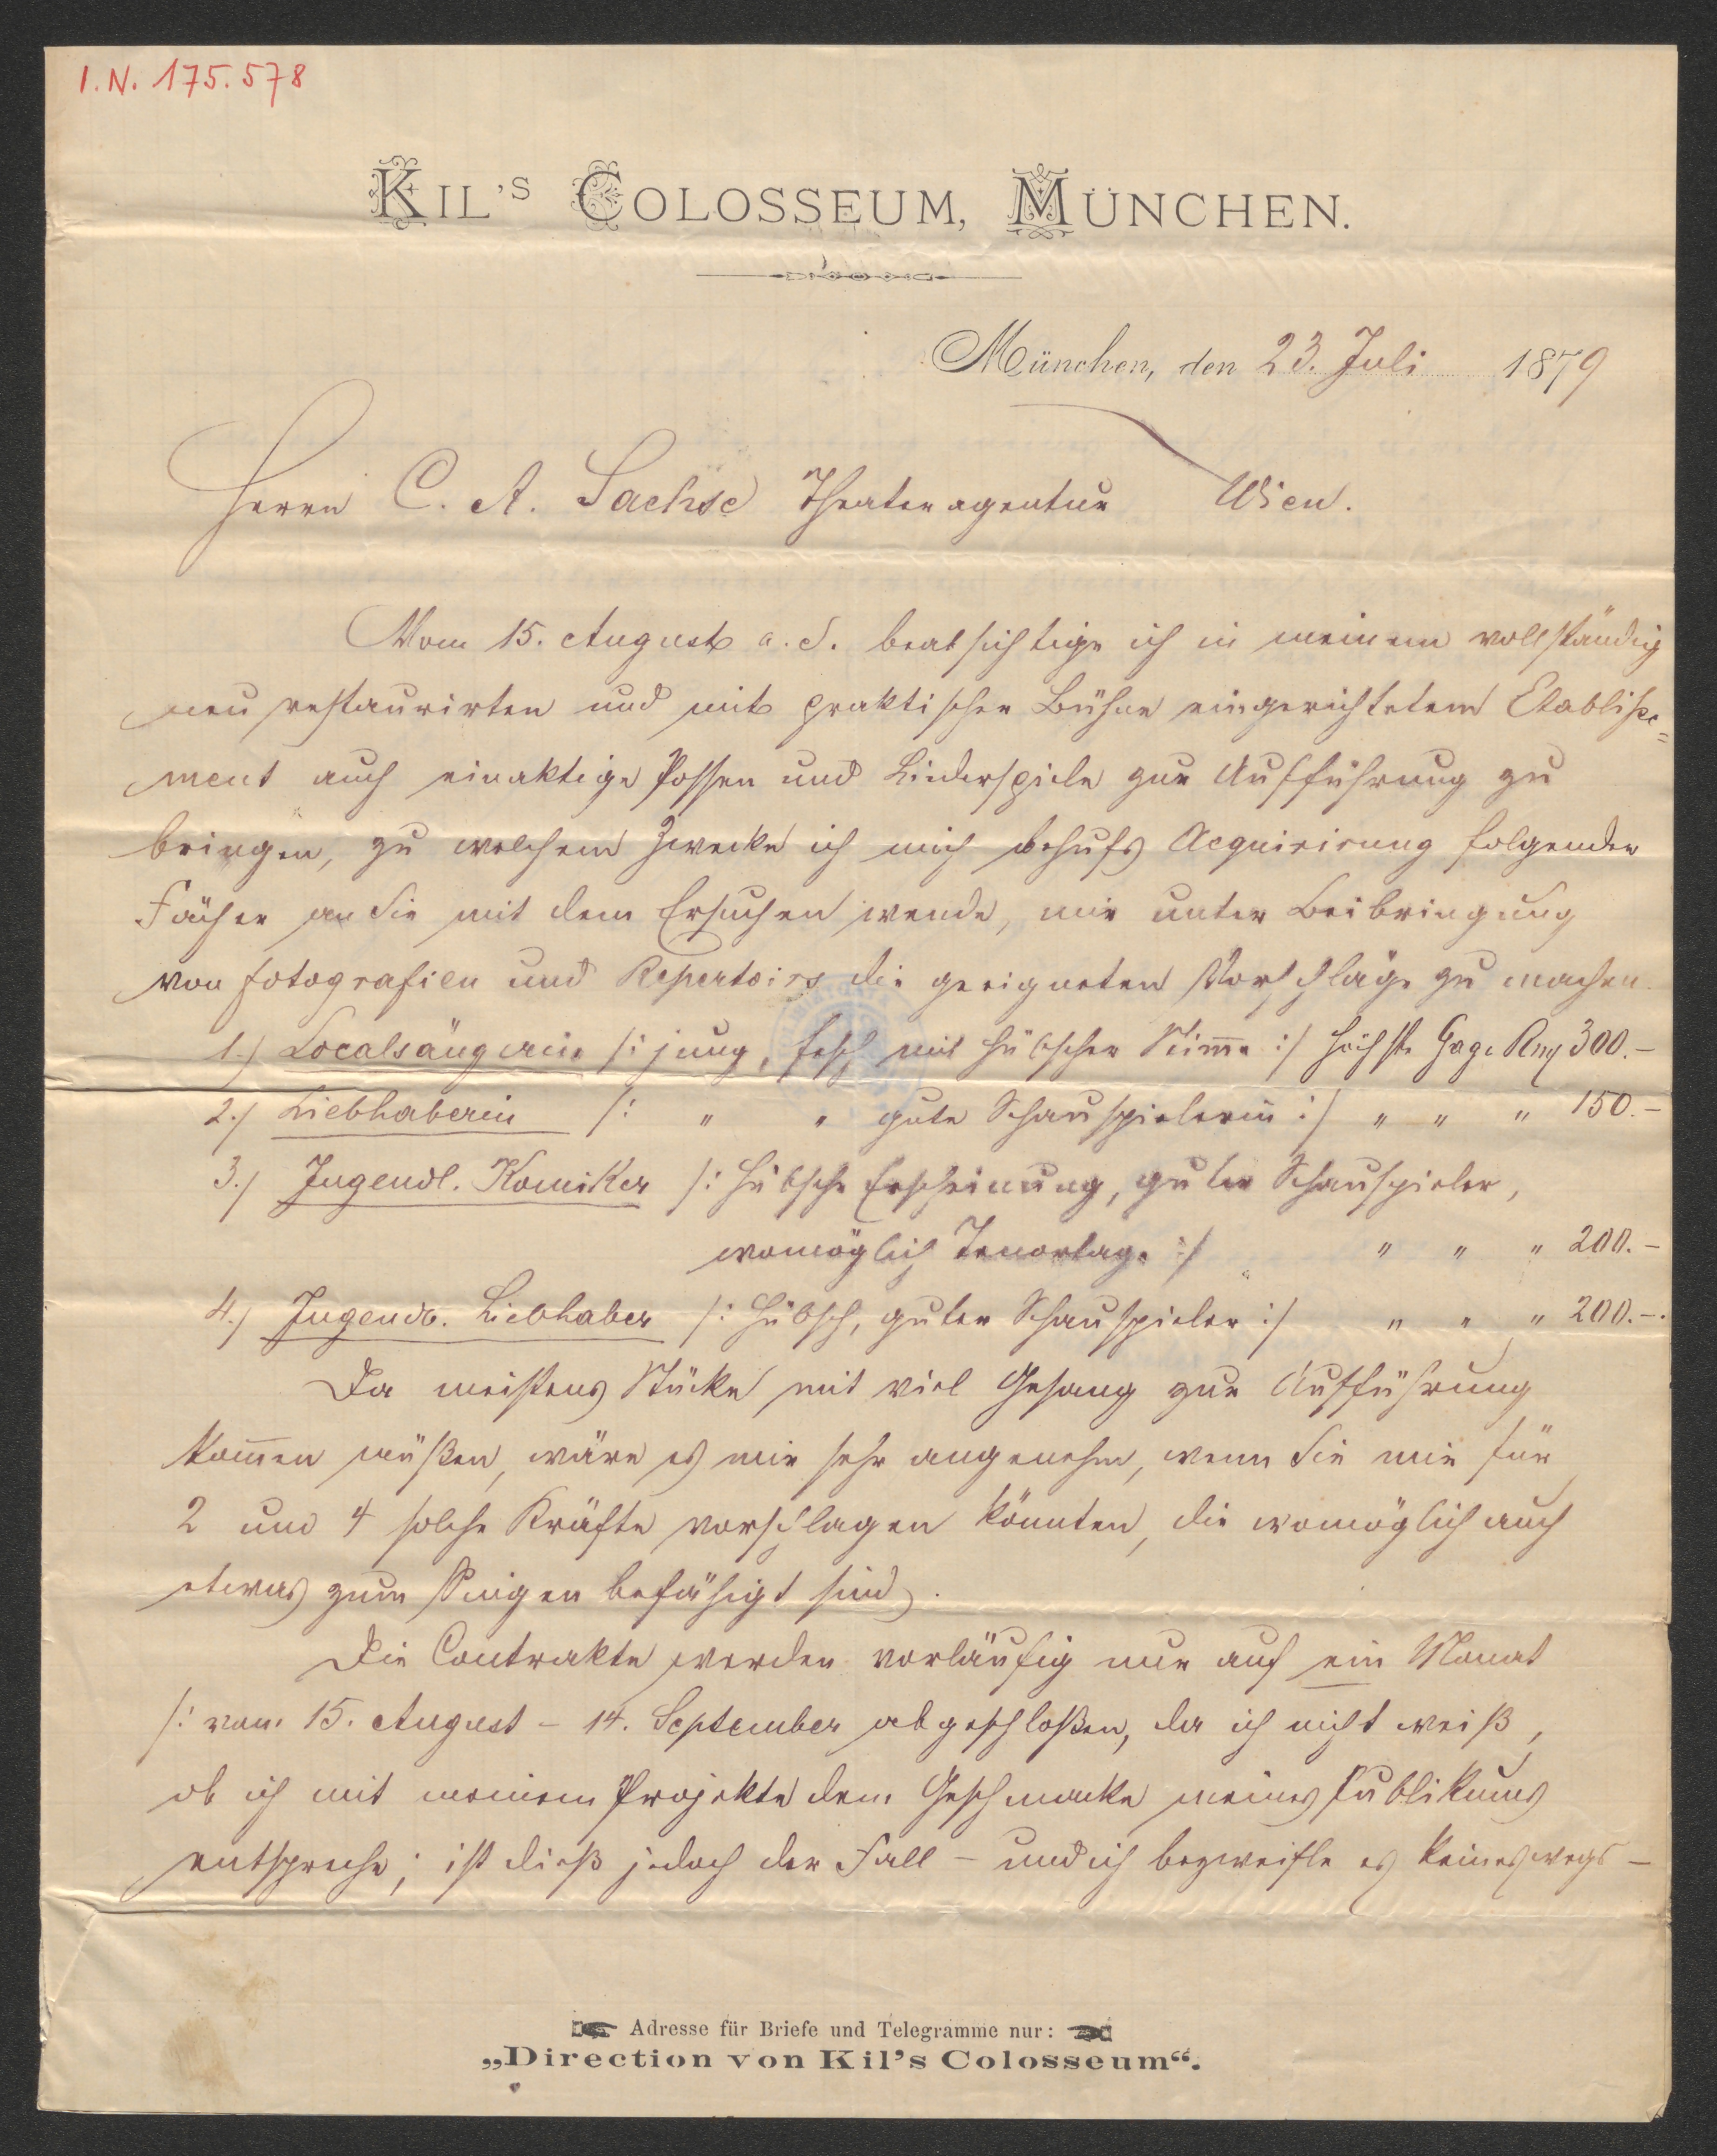 I.N. 175.578
KIL'S COLOSSEUM, MÜNCHEN.
München, den 23. Juli 1879
Herrn C. A. Sachse Theateragentur Wien.
Vom 15. August a. d. beabsichtige ich in meinem vollständig
neu restaurirten und mit praktischer Bühne eingerichtetem Etablisse=
ment auch einaktige Possen und Liederspiele zur Aufführung zu
bringen, zu welchem Zwecke ich mich behufs Acquirirung folgender
Fächer an Sie mit dem Ersuchen wende, mir unter Beibringung
von Fotografien und Repertoirs die geeigneten Vorschläge zu machen.
1.) Localsängerin /: jung, fesch, mit hübscher Stim̄e :/ höchste Gage Rm 300.–
2.) Liebhaberin /: " " gute Schauspielerin :/ " " " 150.–
3.) Jugendl. Komiker /: Hübsche Erscheinung, guter Schauspieler,
womöglich Tenorlage :/ " " " 200.–
4.) Jugendl. Liebhaber /: Hübsch, guter Schauspieler :/ " " " 200.–.
Da meistens Stücke mit viel Gesang zur Aufführung
kom̄en müßen, wäre es mir sehr angenehm, wenn Sie mir für
2 und 4 solche Kräfte vorschlagen könnten, die womöglich auch
etwas zum Singen befähigt sind.
Die Contrakte werden vorläufig nur auf ein Monat
/: vom 15. August – 14. September abgeschloßen, da ich nicht weiß,
ob ich mit meinem Projekte dem Geschmacke meines Publikums
entspreche; ist dieß jedoch der Fall – und ich bezweifle es keineswegs –
Adresse für Briefe und Telegramme nur:
„Direction von Kil's Colosseum“.